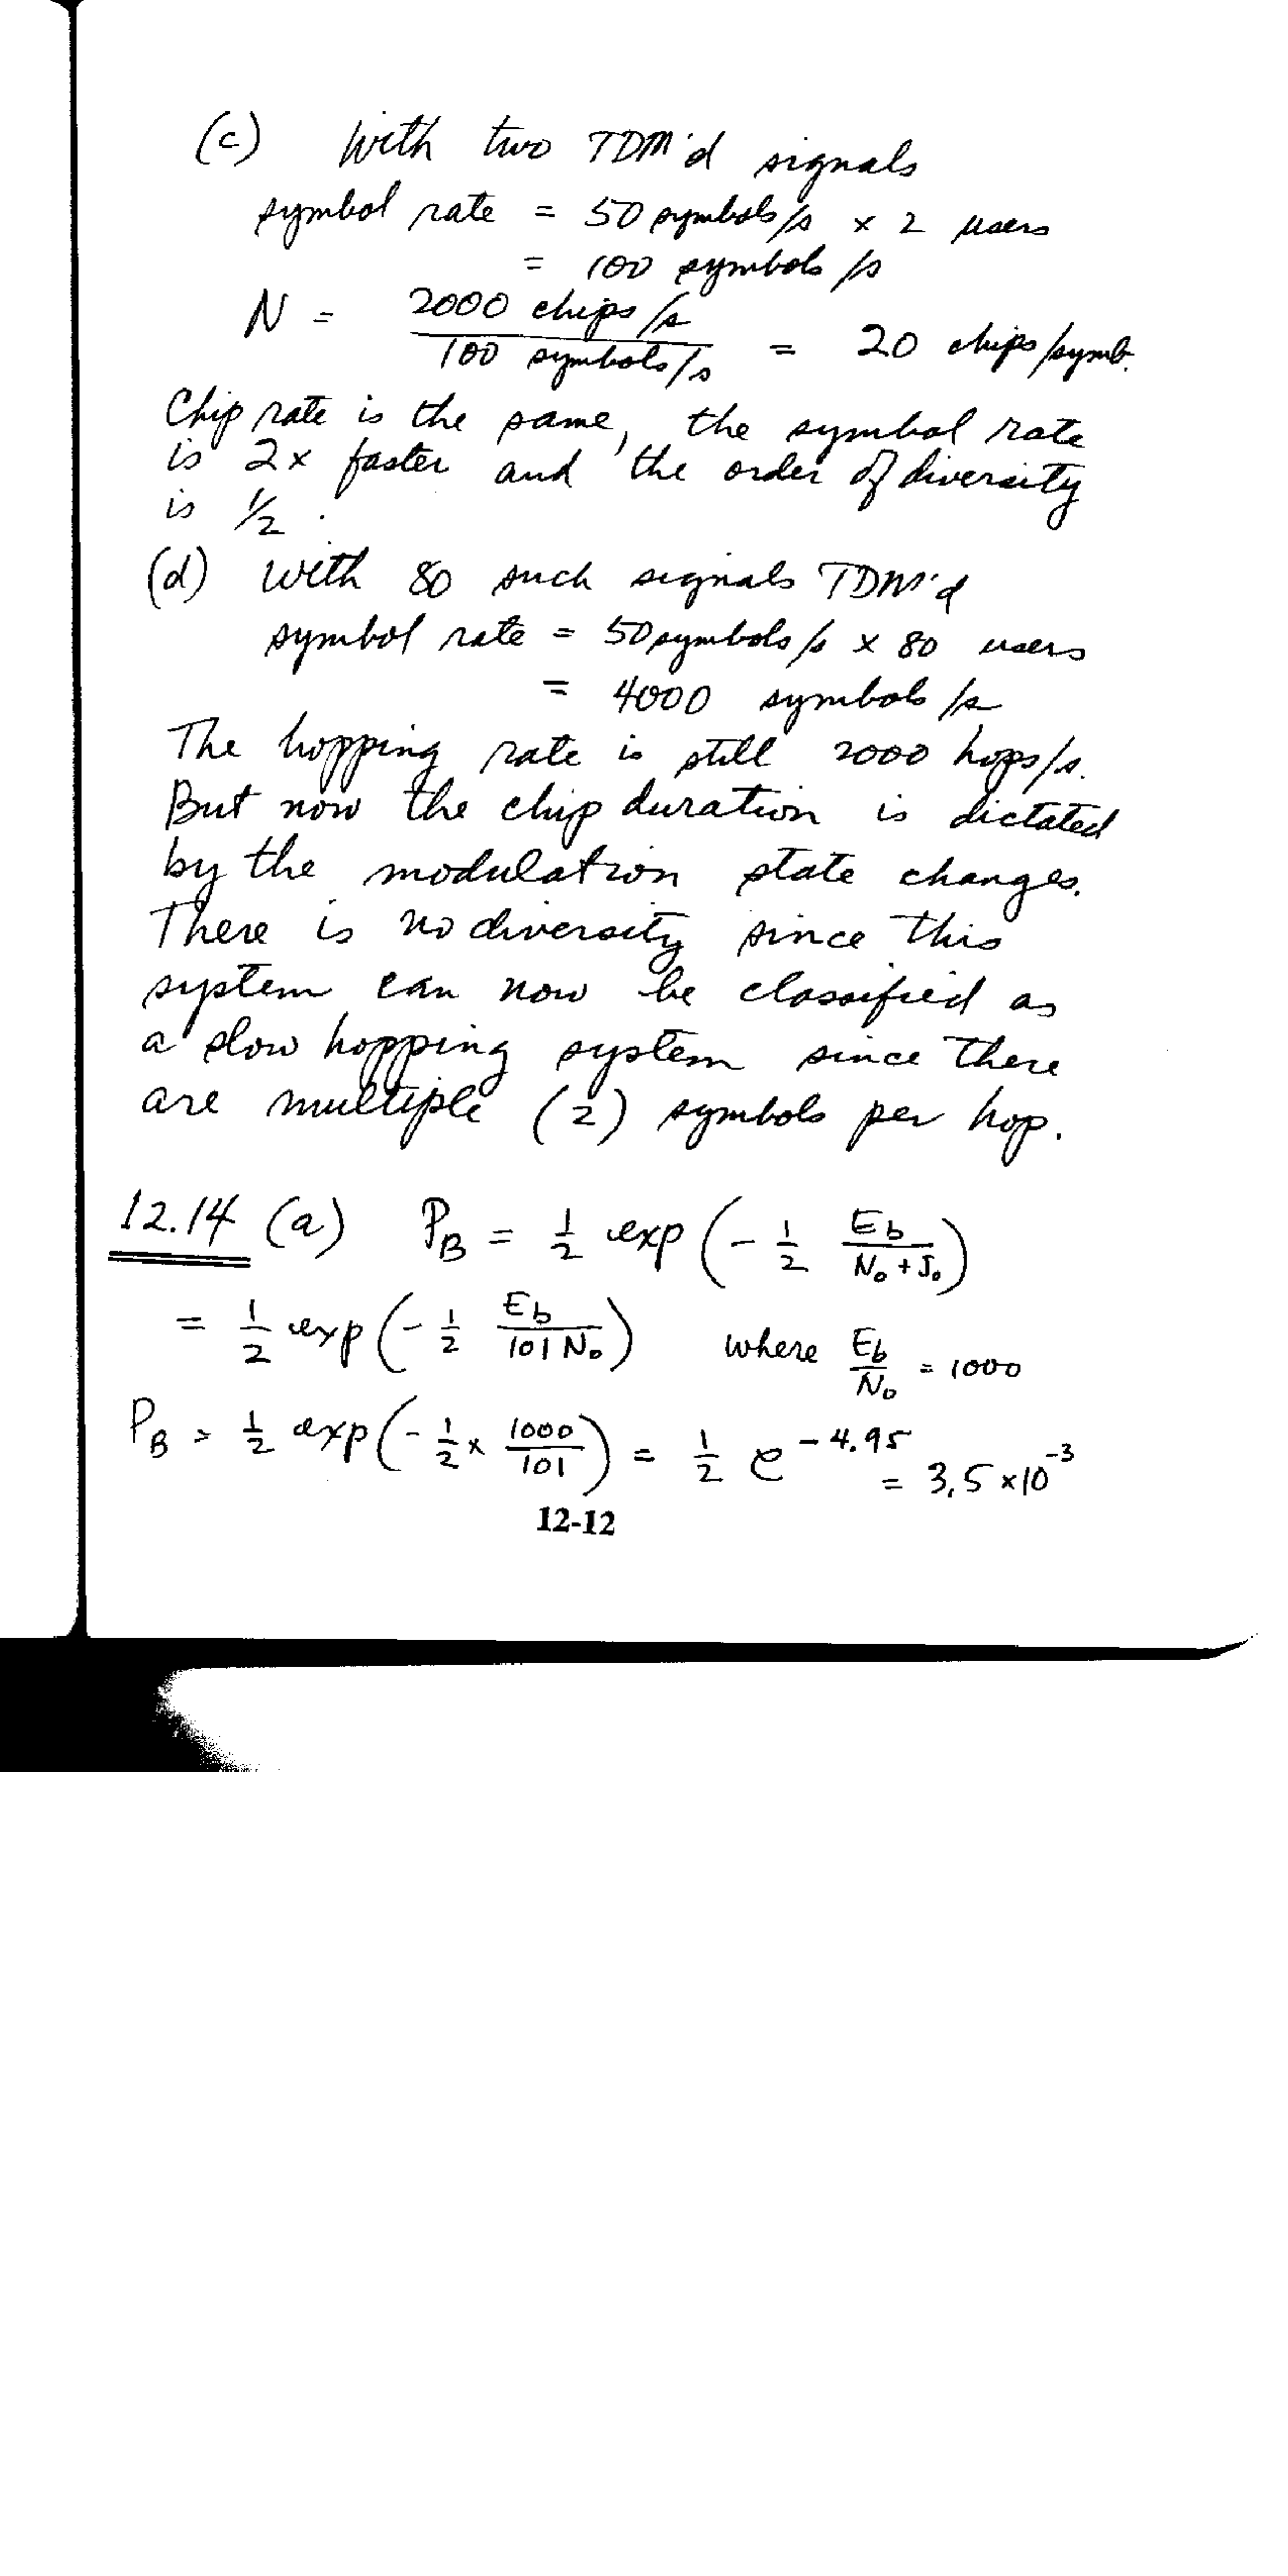 (c) With two TDM'd signals
symbol rate = 50 symbols/s × 2 users
= 100 symbols/s
N = 2000 chips/s / 100 symbols/s = 20 chips/symb.
Chip rate is the same, the symbol rate
is 2x faster and the order of diversity
is 1/2.
(d) With 80 such signals TDM'd
symbol rate = 50 symbols/s × 80 users
= 4000 symbols/s
The hopping rate is still 2000 hops/s.
But now the chip duration is dictated
by the modulation state changes.
There is no diversity since this
system can now be classified as
a slow hopping system since there
are multiple (2) symbols per hop.
12.14 (a) P_B = 1/2 exp(- 1/2 E_b/(N_0 + J_0))
= 1/2 exp(- 1/2 E_b/(101 N_0)) where E_b/N_0 = 1000
P_B = 1/2 exp(- 1/2 × 1000/101) = 1/2 e^-4.95 = 3.5 × 10^-3
12-12